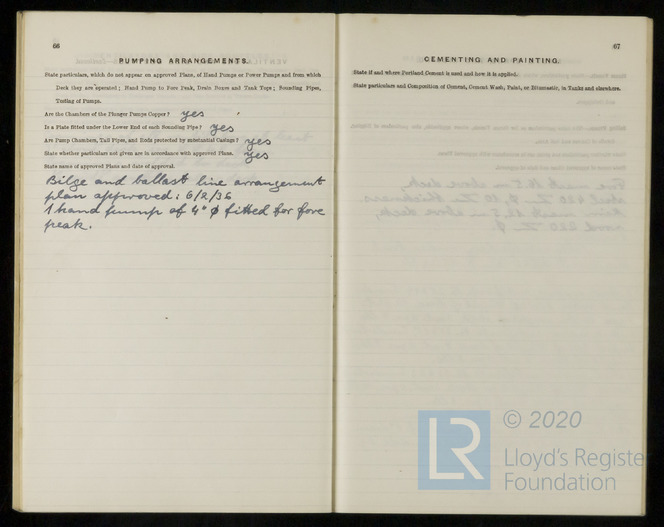 66
PUMPING ARRANGEMENTS.
State particulars, which do not appear on approved Plans, of Hand Pumps or Power Pumps and from which
Deck they are operated; Hand Pump to Fore Peak, Drain Boxes and Tank Tops; Sounding Pipes,
Testing of Pumps.
Are the Chambers of the Plunger Pumps Copper? yes
Is a Plate fitted under the Lower End of each Sounding Pipe? yes
Are Pump Chambers, Tail Pipes, and Rods protected by substantial Casings? yes
State whether particulars not given are in accordance with approved Plans. yes
State name of approved Plans and date of approval.
Bilge and ballast line arrangement
plan approved: 6/2/36
1 hand pump of 4" φ fitted for fore
peak.
67
CEMENTING AND PAINTING.
State if and where Portland Cement is used and how it is applied.
State particulars and Composition of Cement, Cement Wash, Paint, or Bitumastic, in Tanks and elsewhere.
LR
© 2020
Lloyd's Register
Foundation